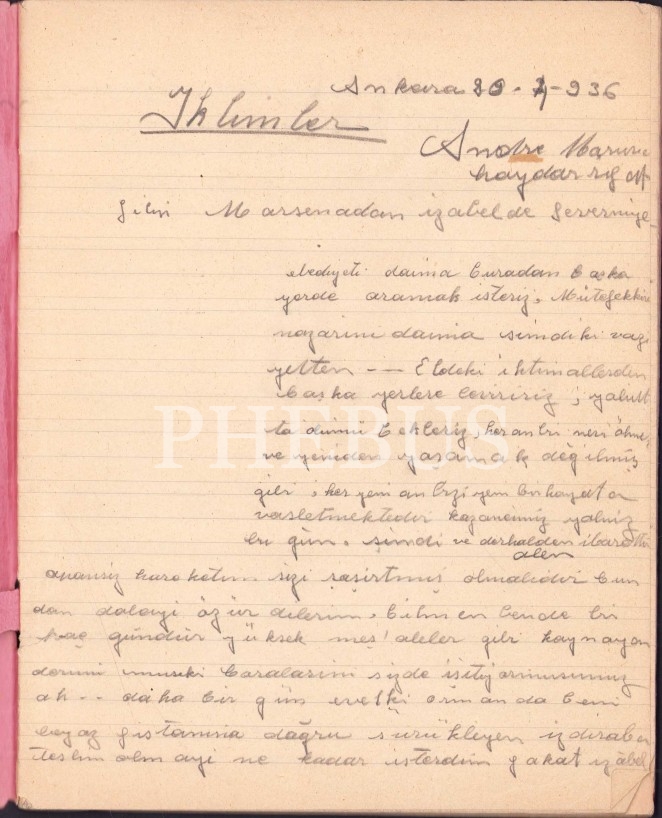 Ankara 20-4-936
Iklimler
Andre Maruru
haydar rıf at
Marsenadan izabelde
ebediyeti daima buradan başka
yerde aramak isteriz. Mütefekkire
nazarını daima şimdiki vazi
yetten -- Eldeki ihtimallerden
başka yerlere çeviririz ; yahut
ta daima bekleriz, her anbı
ve yeniden yaşamak değilmiş
gibi, her yeni an bizi yeni bir hayata
vasletmektedir kazancımız yalnız
bu gün. şimdi ve derhalden ibarettir
alen
apansız hareketim sizi şaşırtmış olmalıdır bun
dan dolayi özür dilerim. bilmen bende bir
kaç gündür yüksek meş'aleler gibi kaynayan
deruni musiki sizde işitiyormusunuz
ah -- daha bir gün evelki ormanda beni
beyaz doğru sürükleyen izdıraba
teslim olmayi ne kadar isterdim fakat izâbel
PHEBUS